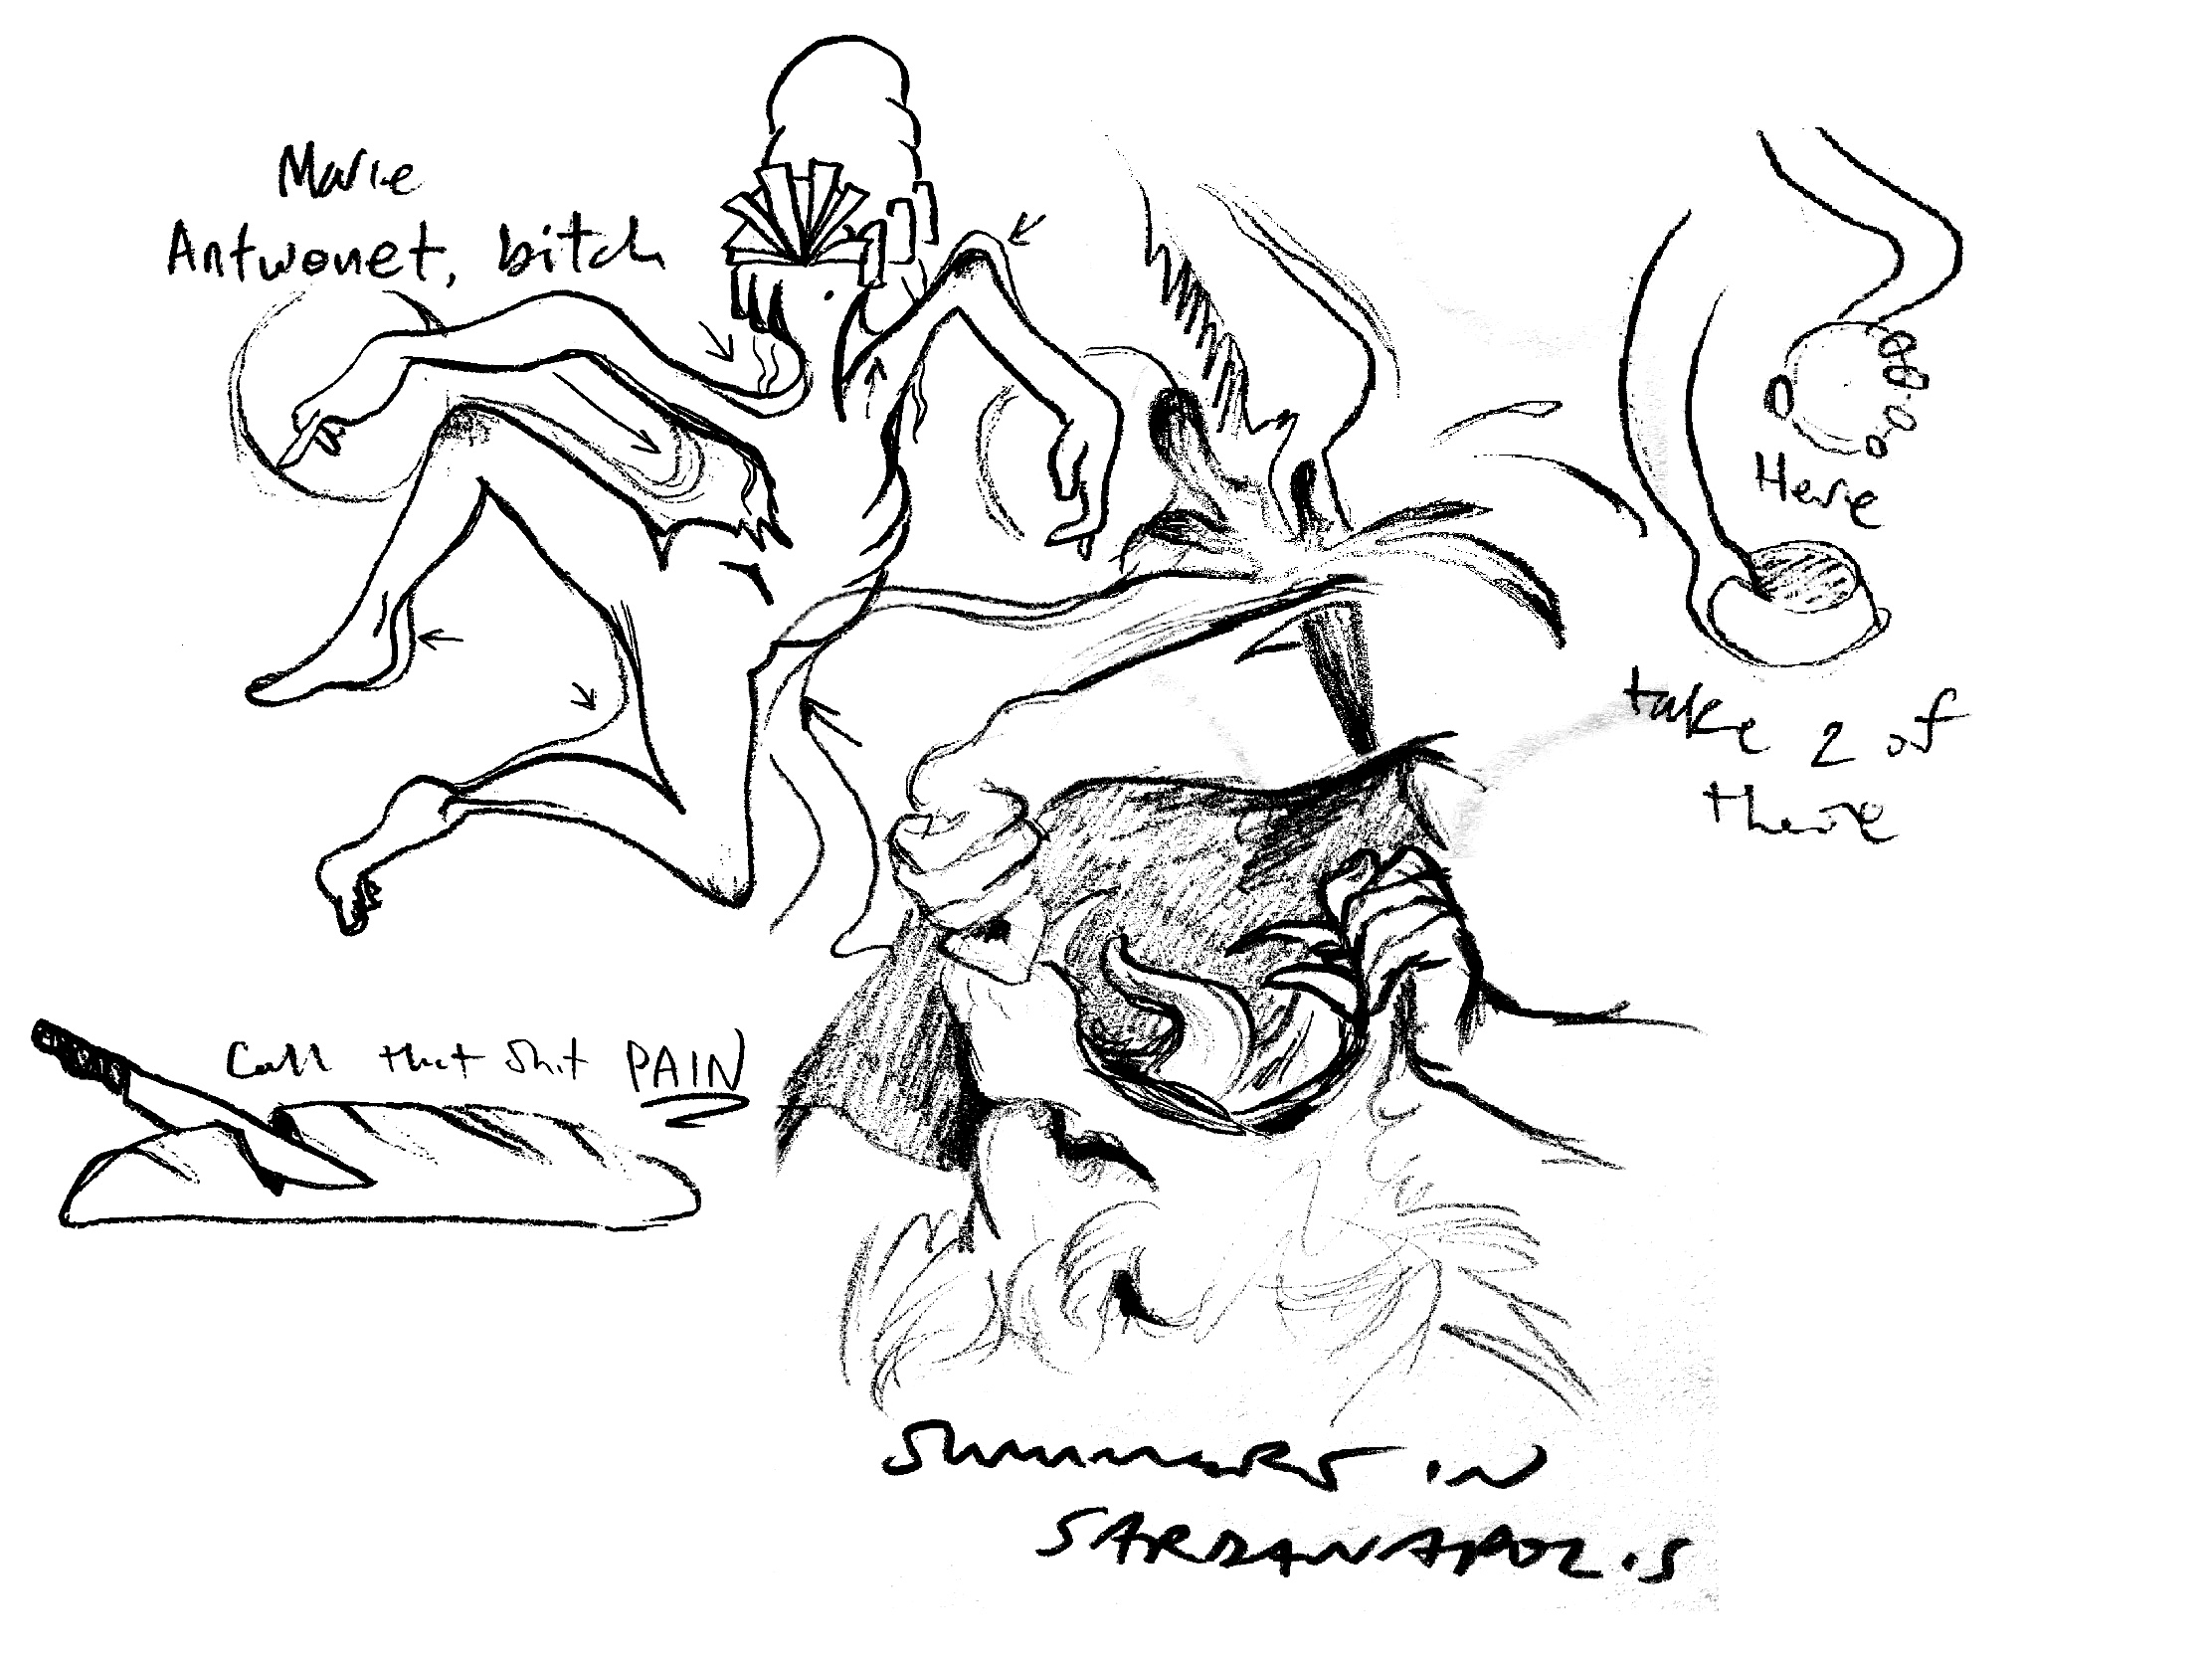 Marie
Antwonet, bitch
Here
take 2 of
there
Call that shit PAIN
SUMMERS IN
SARDANAPOLIS